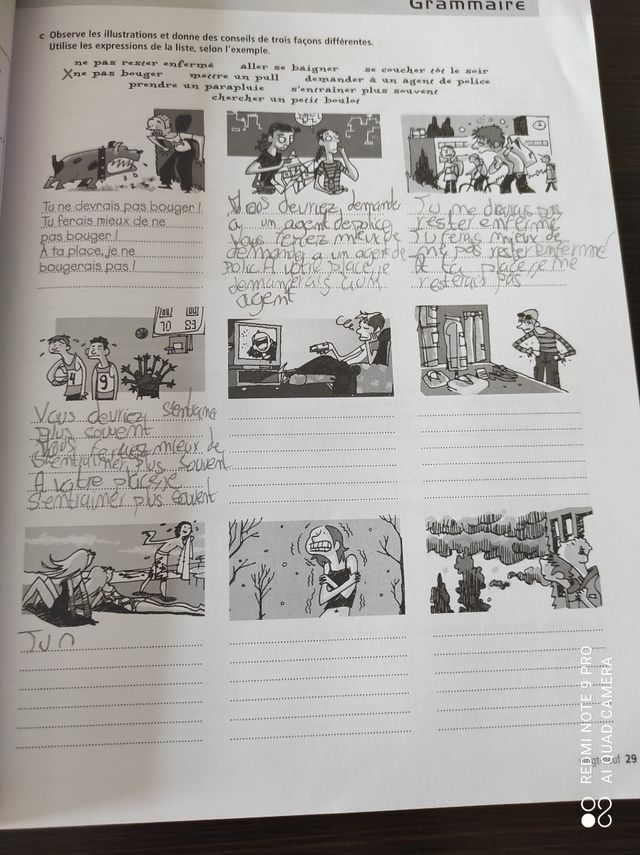 Grammaire
c Observe les illustrations et donne des conseils de trois façons différentes.
Utilise les expressions de la liste, selon l'exemple.
ne pas rester enfermé aller se baigner se coucher tôt le soir
X ne pas bouger mettre un pull demander à un agent de police
prendre un parapluie s'entraîner plus souvent
chercher un petit boulot
Tu ne devrais pas bouger !
Tu ferais mieux de ne
pas bouger !
À ta place, je ne
bougerais pas !
Vous devriez demander
à un agent de police
Vous feriez mieux de
demander a un agent de
police. A votre place, je
demanderais a un
agent
Tu ne devrais pas
rester enfermé
Tu ferais mieux de
ne pas rester enfermé
A ta place je ne
resterais pas
70 93
4 9
Vous devriez s'entraîner
plus souvent
Vous feriez mieux de
s'entraîner plus souvent
A votre place je
s'entrainer plus souvent
Tu n
29
REDMI NOTE 9 PRO
AI QUAD CAMERA